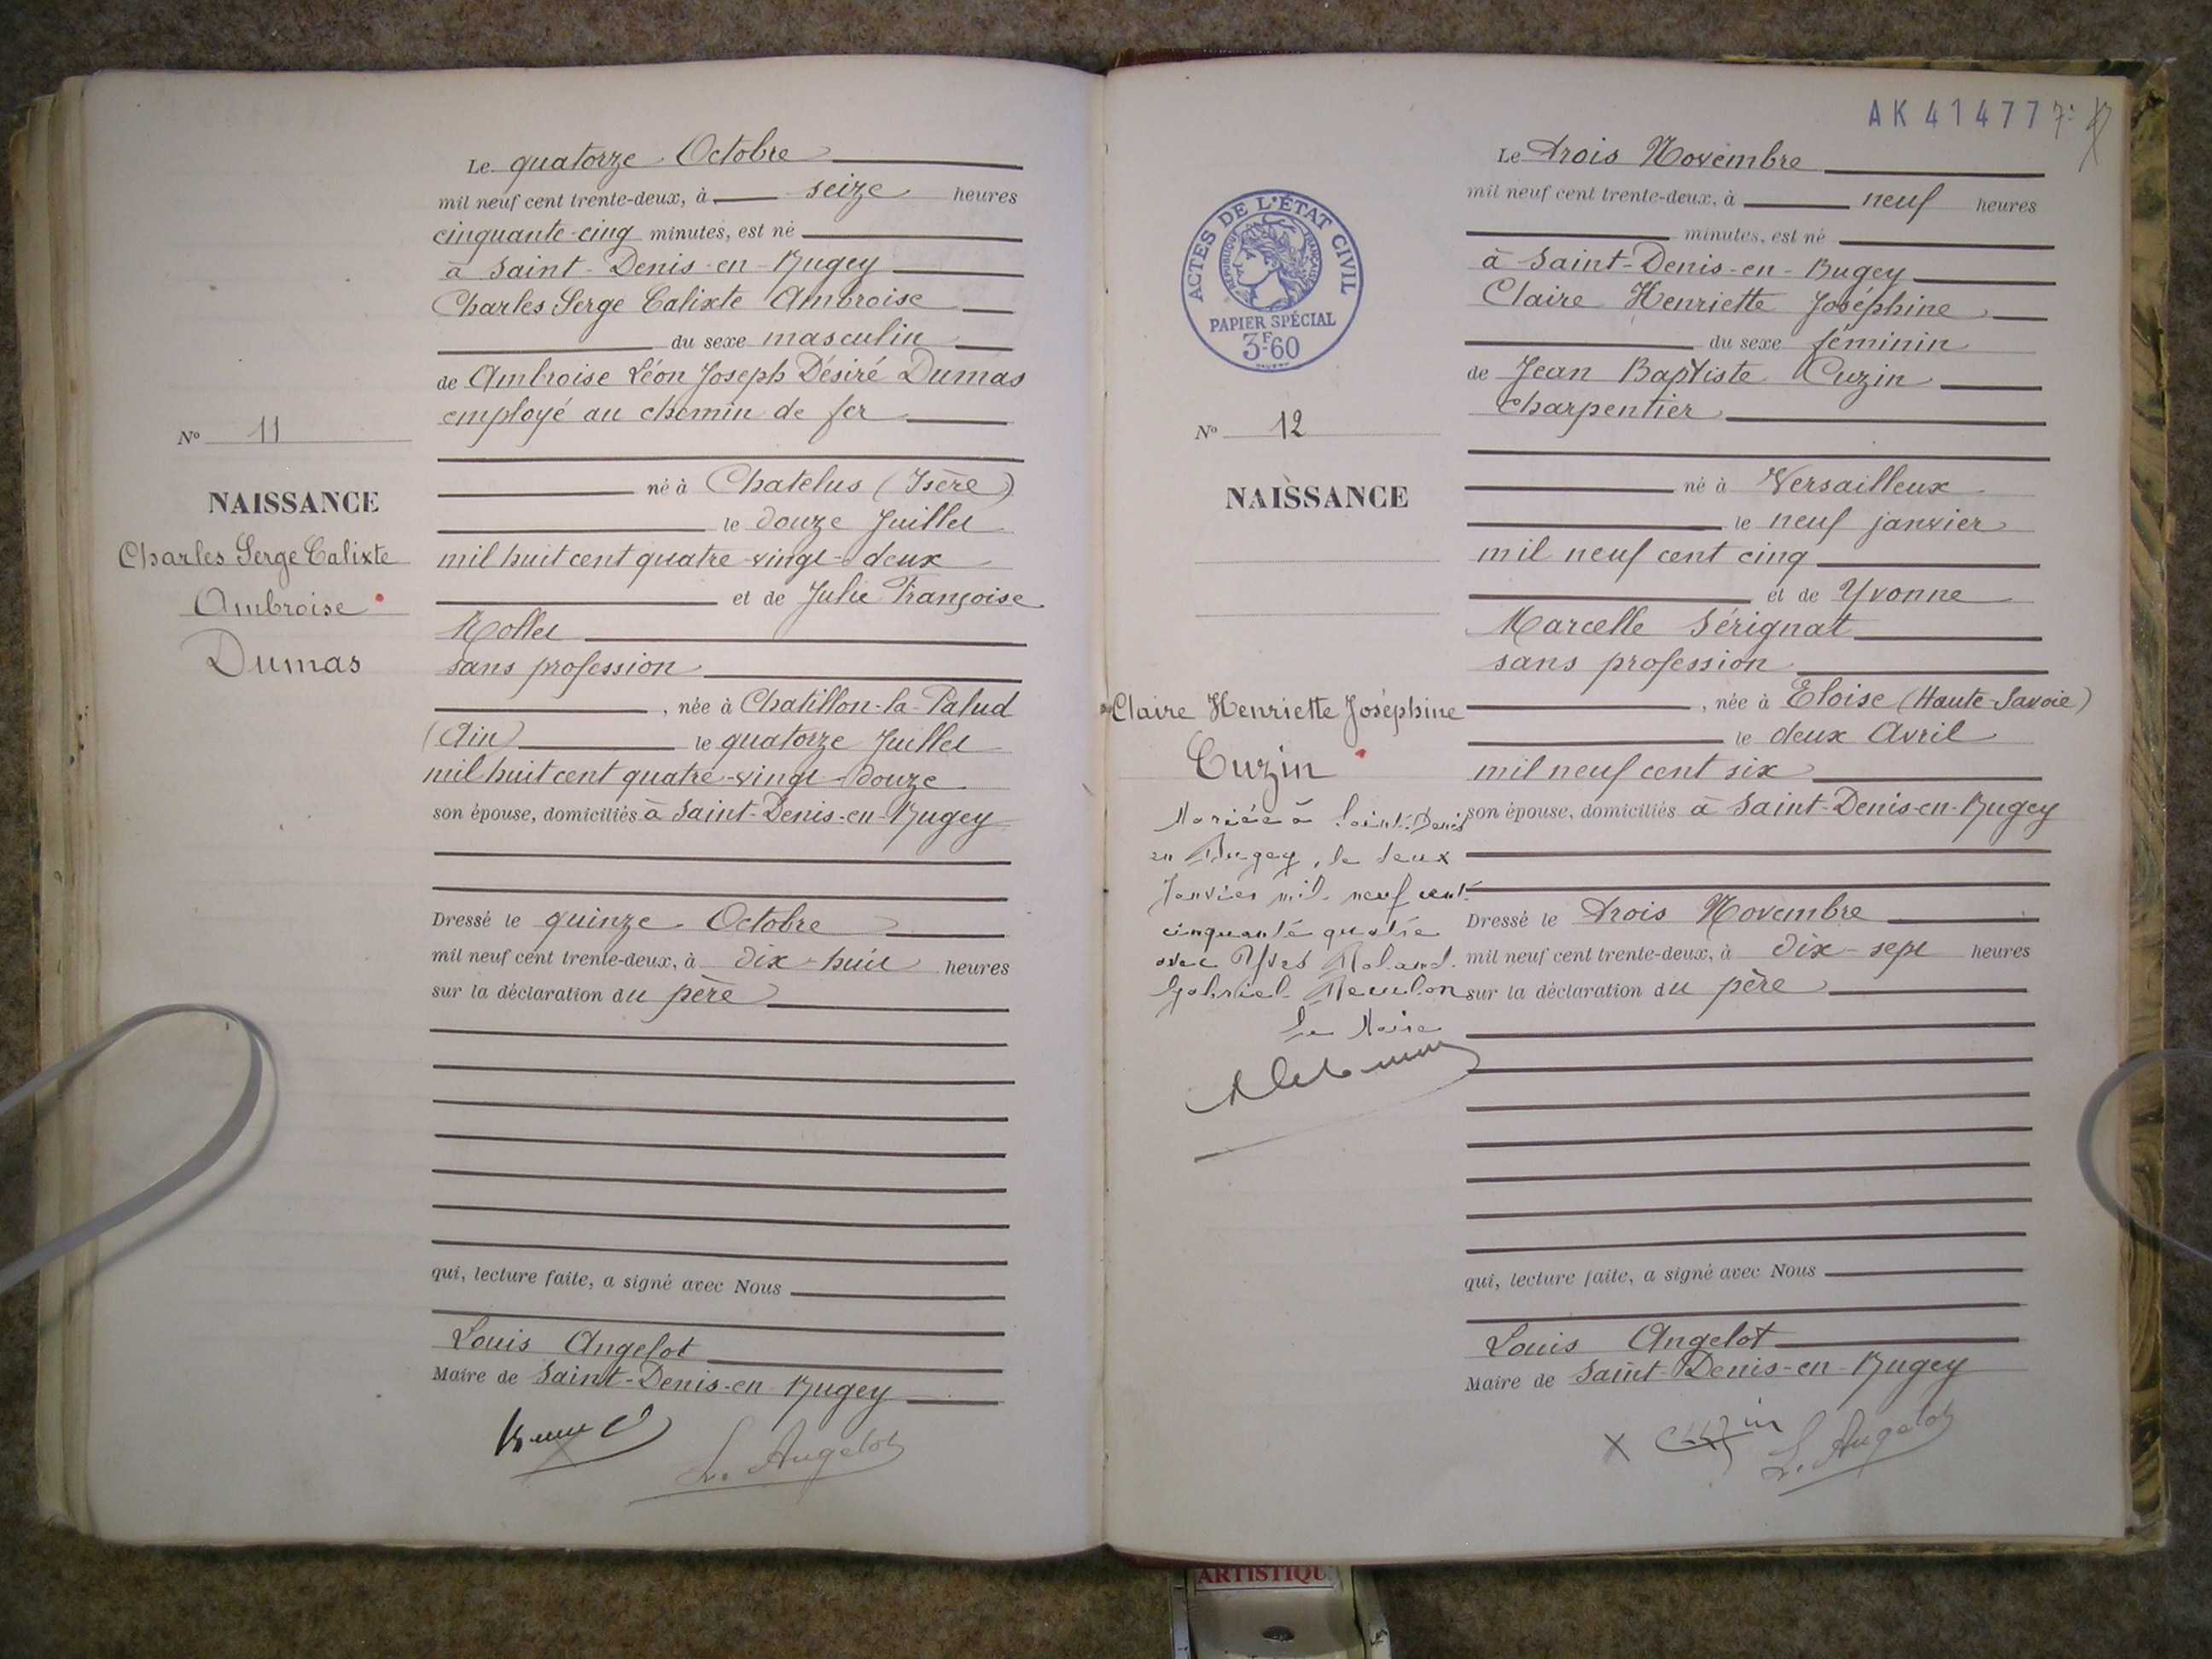 Le quatorze Octobre
mil neuf cent trente-deux, à seize heures
cinquante-cinq minutes, est né
à Saint-Denis-en-Bugey
Charles Serge Calixte Ambroise
du sexe masculin
de Ambroise Léon Joseph Désiré Dumas
employé au chemin de fer
né à Chatelus (Isère)
le douze Juillet
mil huit cent quatre-vingt-deux
et de Julie Françoise
Mollet
sans profession
, née à Chatillon-la-Palud
(Ain) le quatorze Juillet
mil huit cent quatre-vingt-douze
son épouse, domiciliés à Saint-Denis-en-Bugey
Dressé le quinze Octobre
mil neuf cent trente-deux, à dix-huit heures
sur la déclaration du père
qui, lecture faite, a signé avec Nous
Louis Angelot
Maire de Saint-Denis-en-Bugey
L. Angelot
No 11
NAISSANCE
Charles Serge Calixte
Ambroise
Dumas
AK 41477
Le trois Novembre
mil neuf cent trente-deux, à neuf heures
minutes, est né
à Saint-Denis-en-Bugey
Claire Henriette Joséphine
du sexe féminin
de Jean Baptiste Cuzin
charpentier
né à Versailleux
le neuf janvier
mil neuf cent cinq
et de Yvonne
Marcelle Sérignat
sans profession
, née à Eloise (Haute-Savoie)
le deux Avril
mil neuf cent six
son épouse, domiciliés à Saint-Denis-en-Bugey
Dressé le trois Novembre
mil neuf cent trente-deux, à dix-sept heures
sur la déclaration du père
qui, lecture faite, a signé avec Nous
Louis Angelot
Maire de Saint-Denis-en-Bugey
Cuzin L. Angelot
ACTES DE L'ÉTAT CIVIL
RÉPUBLIQUE FRANÇAISE
PAPIER SPÉCIAL
3F60
No 12
NAISSANCE
Claire Henriette Joséphine
Cuzin
Mariée à Saint-Denis
en Bugey, le deux
Janvier mil neuf cent
cinquante quatre
avec Yves Roland
Gabriel
Le Maire
ARTISTIQU